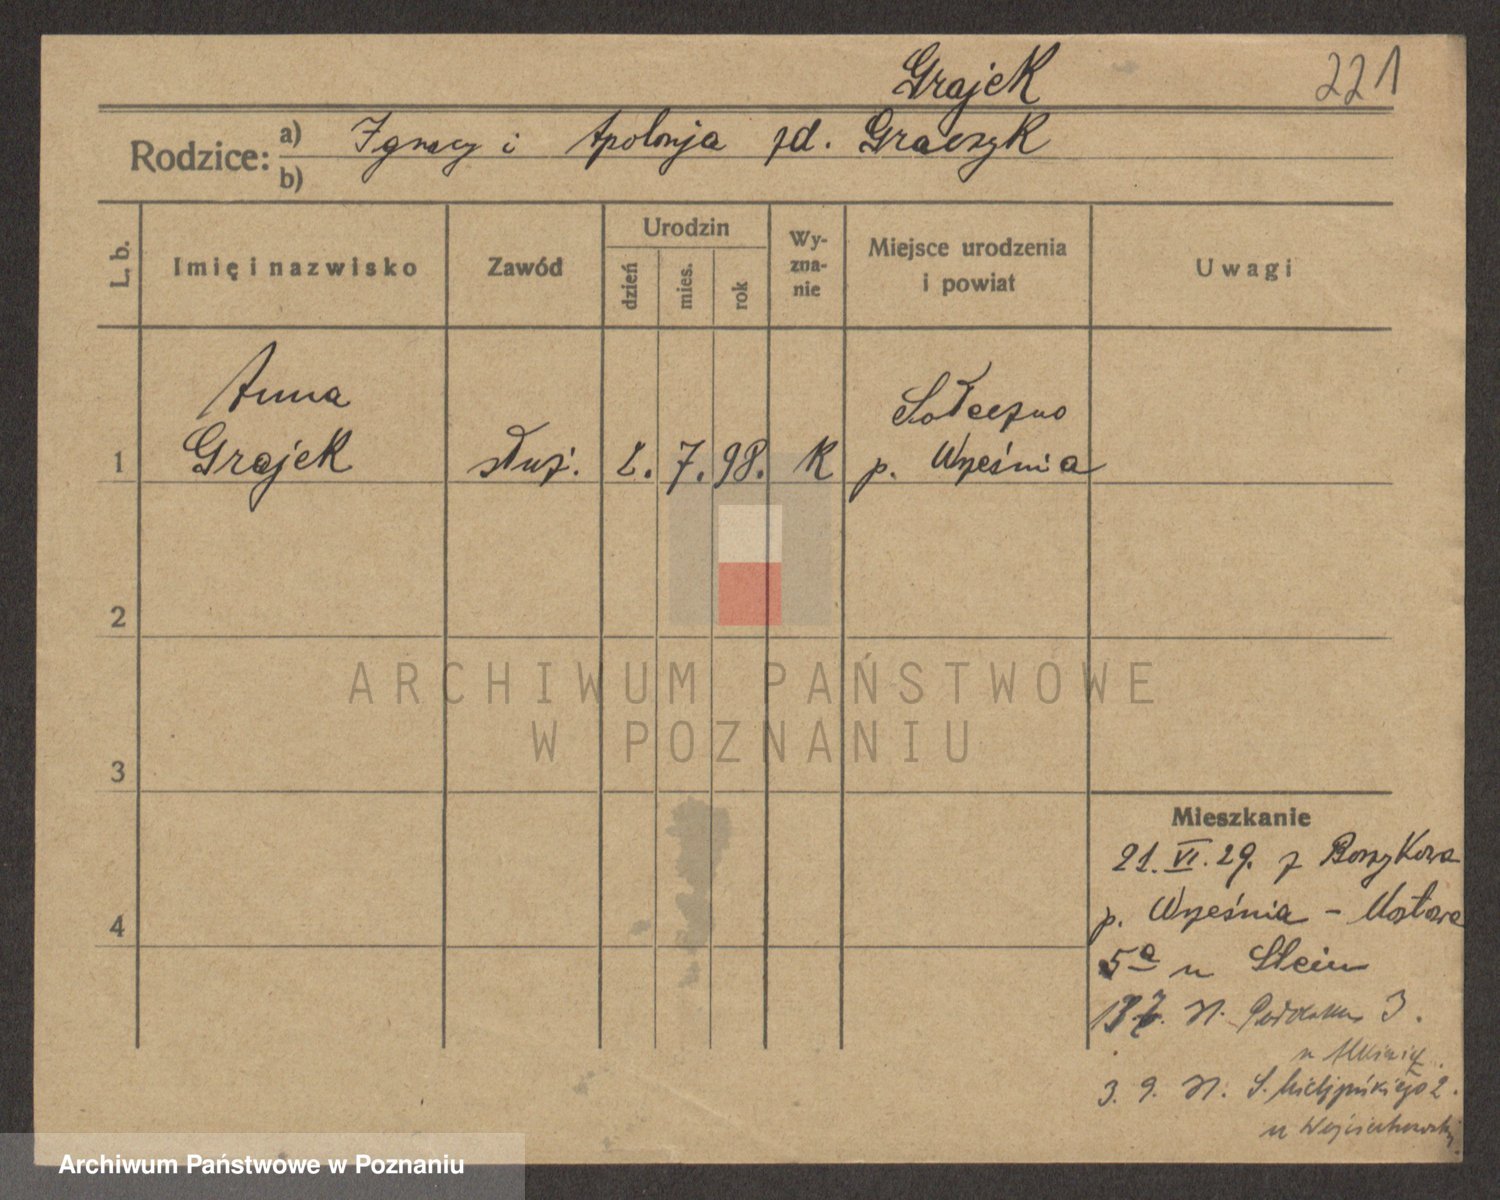 Grajek
221
Rodzice: a) Ignacy i Apolonja zd. Graczyk
b)
L. b.
Imię i nazwisko
Zawód
Urodzin
dzień
mies.
rok
Wy-
zna-
nie
Miejsce urodzenia
i powiat
Uwagi
Anna
Sołeczno
1 Grajek służ. 2. 7. 98. K p. Września
2
ARCHIWUM PAŃSTWOWE
W POZNANIU
3
Mieszkanie
21. VI. 29. z Borzykowa
4
p. Września - Mostowa
5a u Stein
3.
u
3. 9. S. Mielżyńskiego 2.
u Wojciechowski
Archiwum Państwowe w Poznaniu